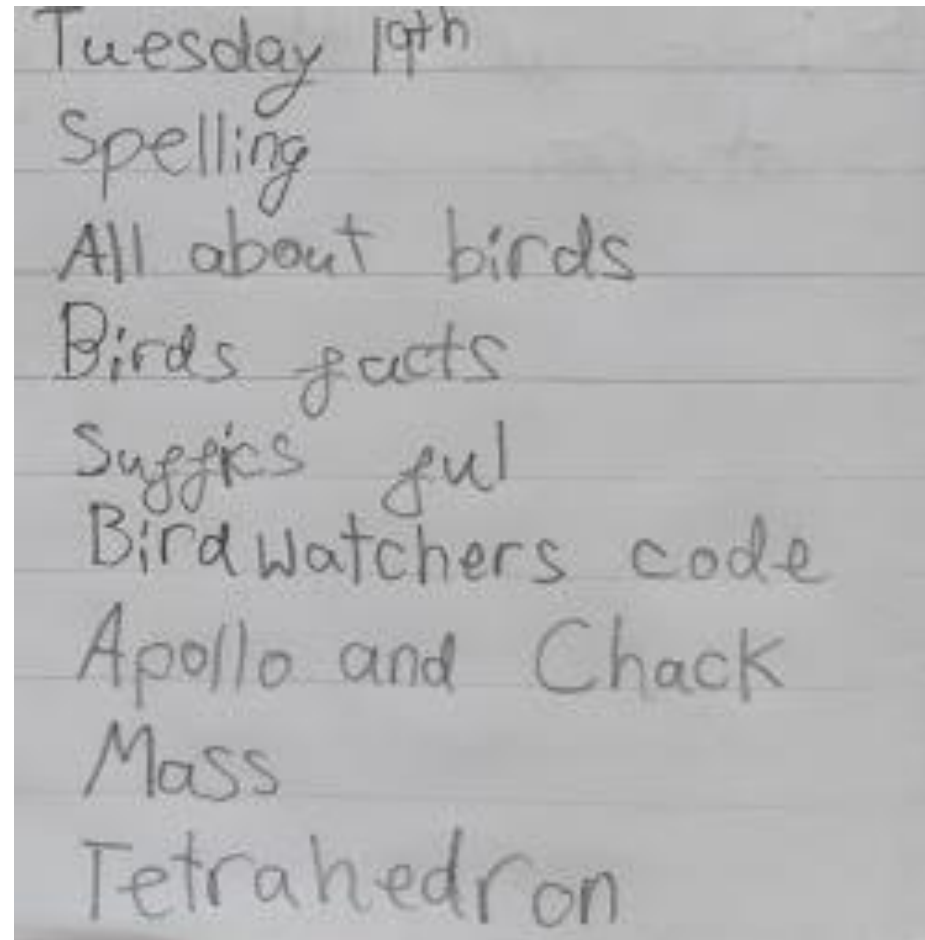 Tuesday 19th
Spelling
All about birds
Birds facts
Suffics ful
Birdwatchers code
Apollo and Chack
Mass
Tetrahedron